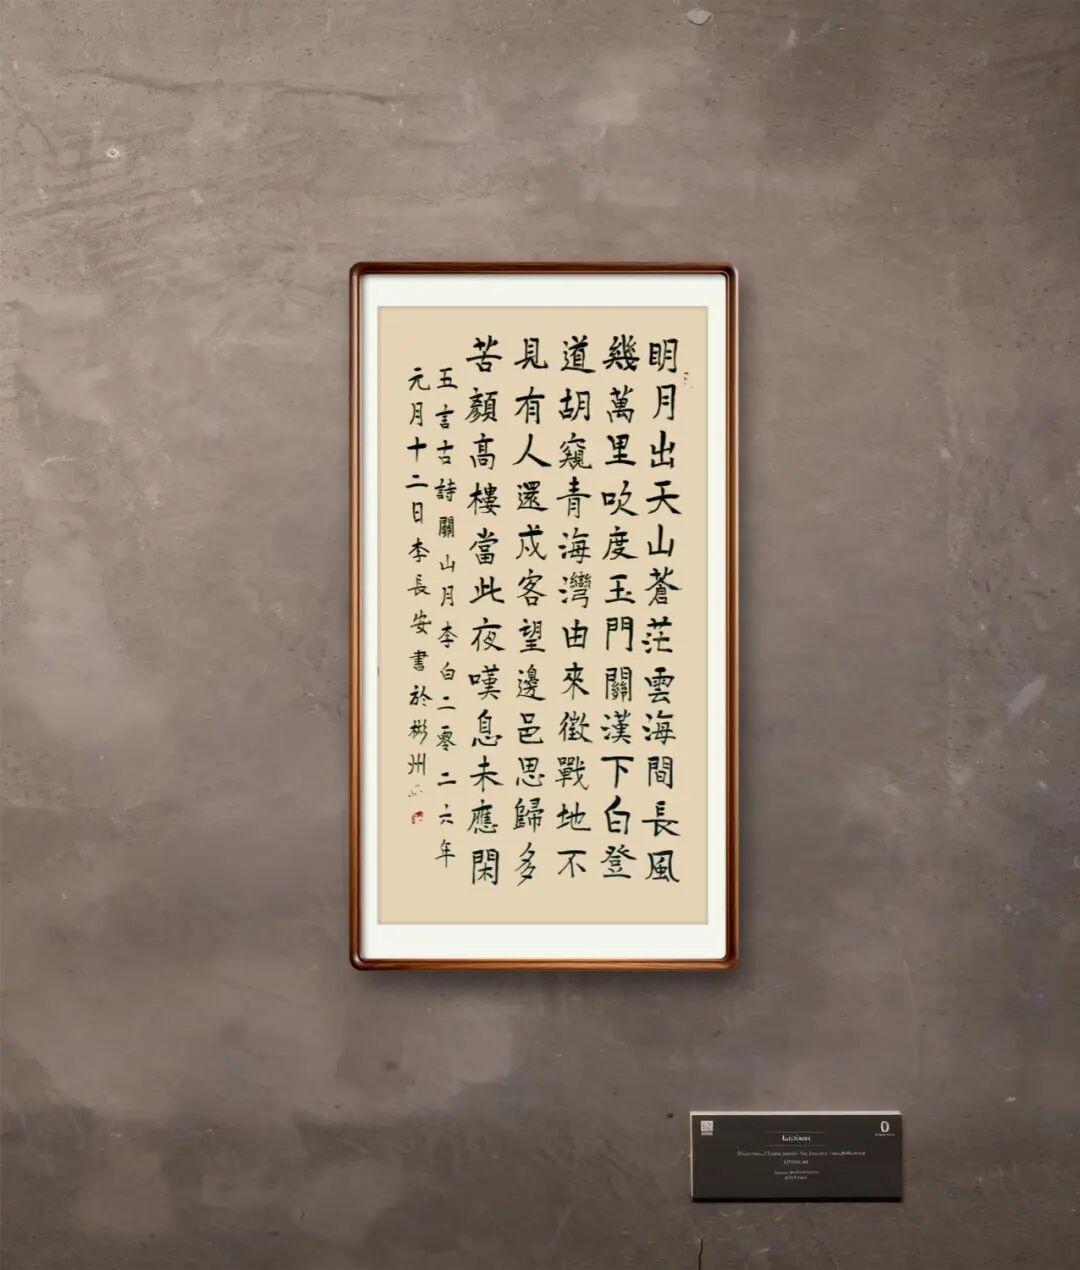 明月出天山蒼茫雲海間長風
幾萬里吹度玉門關漢下白登
道胡窺青海灣由來徵戰地不
見有人還戍客望邊邑思歸多
苦顏高樓當此夜嘆息未應閑
五言古詩關山月李白二零二六年
元月十二日李長安書於彬州